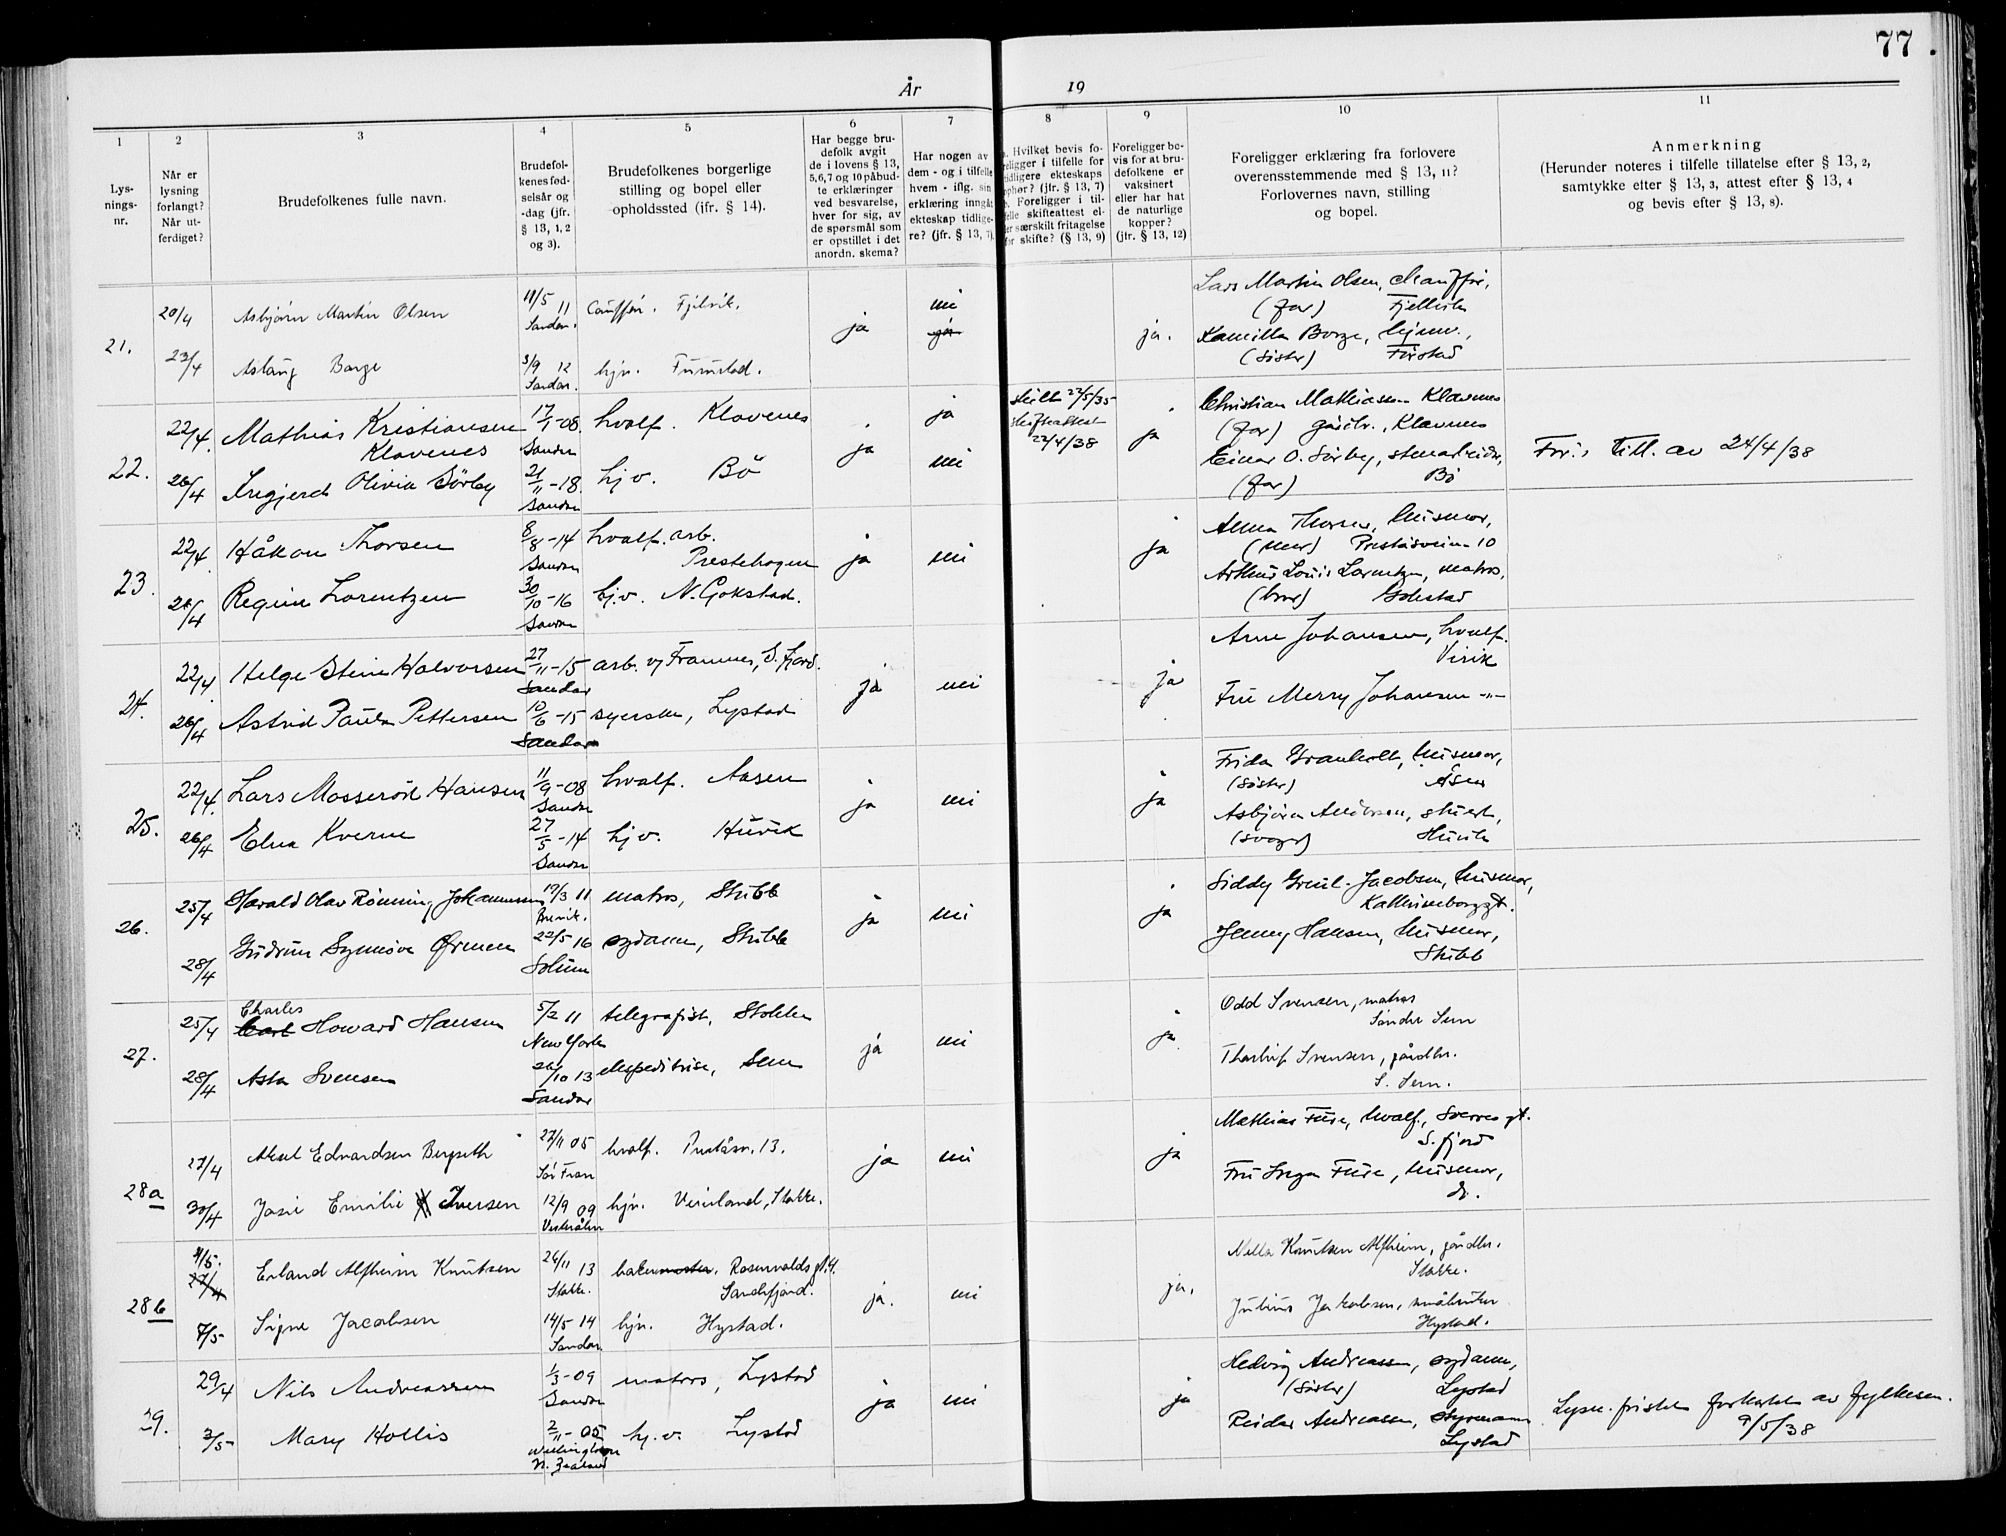 77.
År 19
1
Lys-
nings-
nr.
2
Når er
lysning
forlangt?
Når ut-
ferdiget?
3
Brudefolkenes fulle navn.
4
Brudefol-
kenes fød-
selsår og
-dag (jfr.
§ 13, 1, 2
og 3).
5
Brudefolkenes borgerlige
stilling og bopel eller
opholdssted (ifr. § 14).
6
Har begge bru-
defolk avgit
de i lovens § 13,
5, 6, 7 og 10 påbud-
te erklæringer
ved besvarelse,
hver for sig, av
de spørsmål som
er opstillet i det
anordn. skema?
7
Har nogen av
dem - og i tilfelle
hvem - iflg. sin
erklæring inngåt
ekteskap tidlige-
re? (jfr. § 13, 7).
8
Hvilket bevis fo-
religger i tilfelle for
tidligere ekteskaps
ophør? (jfr. § 13, 7)
Foreligger i til-
felle skifteattest el-
ler særskilt fritagelse
for skifte? (§ 13, 9)
9
Foreligger be-
vis for at bru-
defolkene er
vaksinert
eller har hat
de naturlige
kopper?
(jfr. § 13, 12)
10
Foreligger erklæring fra forlovere
overensstemmende med § 13, 11?
Forlovernes navn, stilling
og bopel.
11
Anmerkning
(Herunder noteres i tilfelle tillatelse efter § 13, 2,
samtykke efter § 13, 3, attest efter § 13, 4
og bevis efter § 13, 8).
21.
20/4 Asbjørn Martin Olsen 11 Sandar. Fjelvik. ja nei ja.
Lars Martin Olsen,
(far) Fjellvik
23/4 Aslaug Borge 3/9 12 Sandar. hjv. Furustad.
Kamilla Borge,
(søster)
22.
22/4. Mathias Kristiansen Klavenes 17/1-08. Sandar hvalf. Klavenes ja ja skilt 22/5/35 skifteattest 22/4/38 ja
Christian Mathiasen Klavenes
(far) gårdbr., Klavenes
26/4 Ingjerd Olivia Sørby 21/11-18. Sandar hjv. Bö nei
Einar O. Sørby, stenarbeider,
(far) Bö
For. till. av 24/4/38
23.
22/4. Håkon Thorsen 8/8-14 Sandar hvalf. arb. Prestehagen ja nei ja
Anna Thorsen, husmor,
(mor) Preståsvein 10
26/4 Regine Lorentzen 30/10-16 Sandar hj.v. N. Gokstad.
Arthur Louis Lorentzen, matros,
(bror) Gokstad
24.
22/4. Helge Stein Halvorsen 27/11-15 Sandar arb. v/ Framnes, S.fjord. ja nei ja
Arne Johansen, hvalf.
Virik
26/4 Astrid Paula Pettersen 10/6-15 Sandar syerske, Lystad
Fru Merry Johansen -"-
25.
22/4. Lars Mosserød Hansen 11/9-08 Sandar hvalf. Aasen ja nei ja
Frida Granholt, husmor,
(søster) Åsen
26/4 Elna Kverne 27/5-14 Sandar hjv. Huvik
Asbjørn Andersen, stuert,
(svoger) Huvik
26.
25/4 Harald Olav Rønning Johannessen 19/3 11 Brevik. matros, Stubb ja nei ja
Siddy Jacobsen, husmor,
Kathrineborggt.
28/4 Gudrun Synnøve Ørmen 22/5 16 Solum sydame, Stubb
Jenny Hansen, husmor,
Stubb
27.
25/4 Charles Howard Hansen 5/2 11 New York telegrafist, Stokke ja nei ja
Odd Svensen, matros
Søndre Sem
28/4 Asta Svensen 26/10 13 Sandar ekspeditrise, Sem
Thorleif Svensen, gårdbr.
S. Sem.
28a
27/4 Aksel Edvardsen Bergseth 27/11 05 hvalf. Preståsv. 13. ja nei ja
Mathias Fure, hvalf., Sverres gt.
S.fjord
30/4 Josie Emilie Iversen 12/9 09 Vesterålen hjv. Stokke.
Fru Inga Fure, husmor,
do.
28b
4/5. 27/4 Erland Alfheim Knutsen 26/11 13 Stokke. baker Rosenvolds gt. 4. Sandefjord. ja. nei ja.
Nella Knutsen Alfheim, gårdbr.
Stokke.
7/5 Signe Jacobsen 14/5 14 Sandar. hjv. Hystad.
Julius Jakobsen, småbruker
Hystad.
29.
29/4 Nils Andreassen 1/3-09 Sandar matros, Lystad ja nei ja
Hedvig Andreassen, sydame,
(søster) Lystad
3/5 Mary Hollis 2/11-05 Wellington N. Zealand hj.v. Lystad
Reidar Andreassen, styrmann
Lystad
Lysn. fristen forkortet av fylkesm.
9/5/38